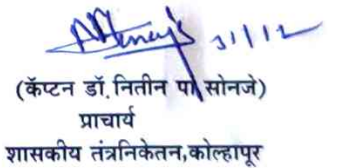 31/12
(कॅप्टन डॉ. नितीन पां सोनजे)
प्राचार्य
शासकीय तंत्रनिकेतन,कोल्हापूर